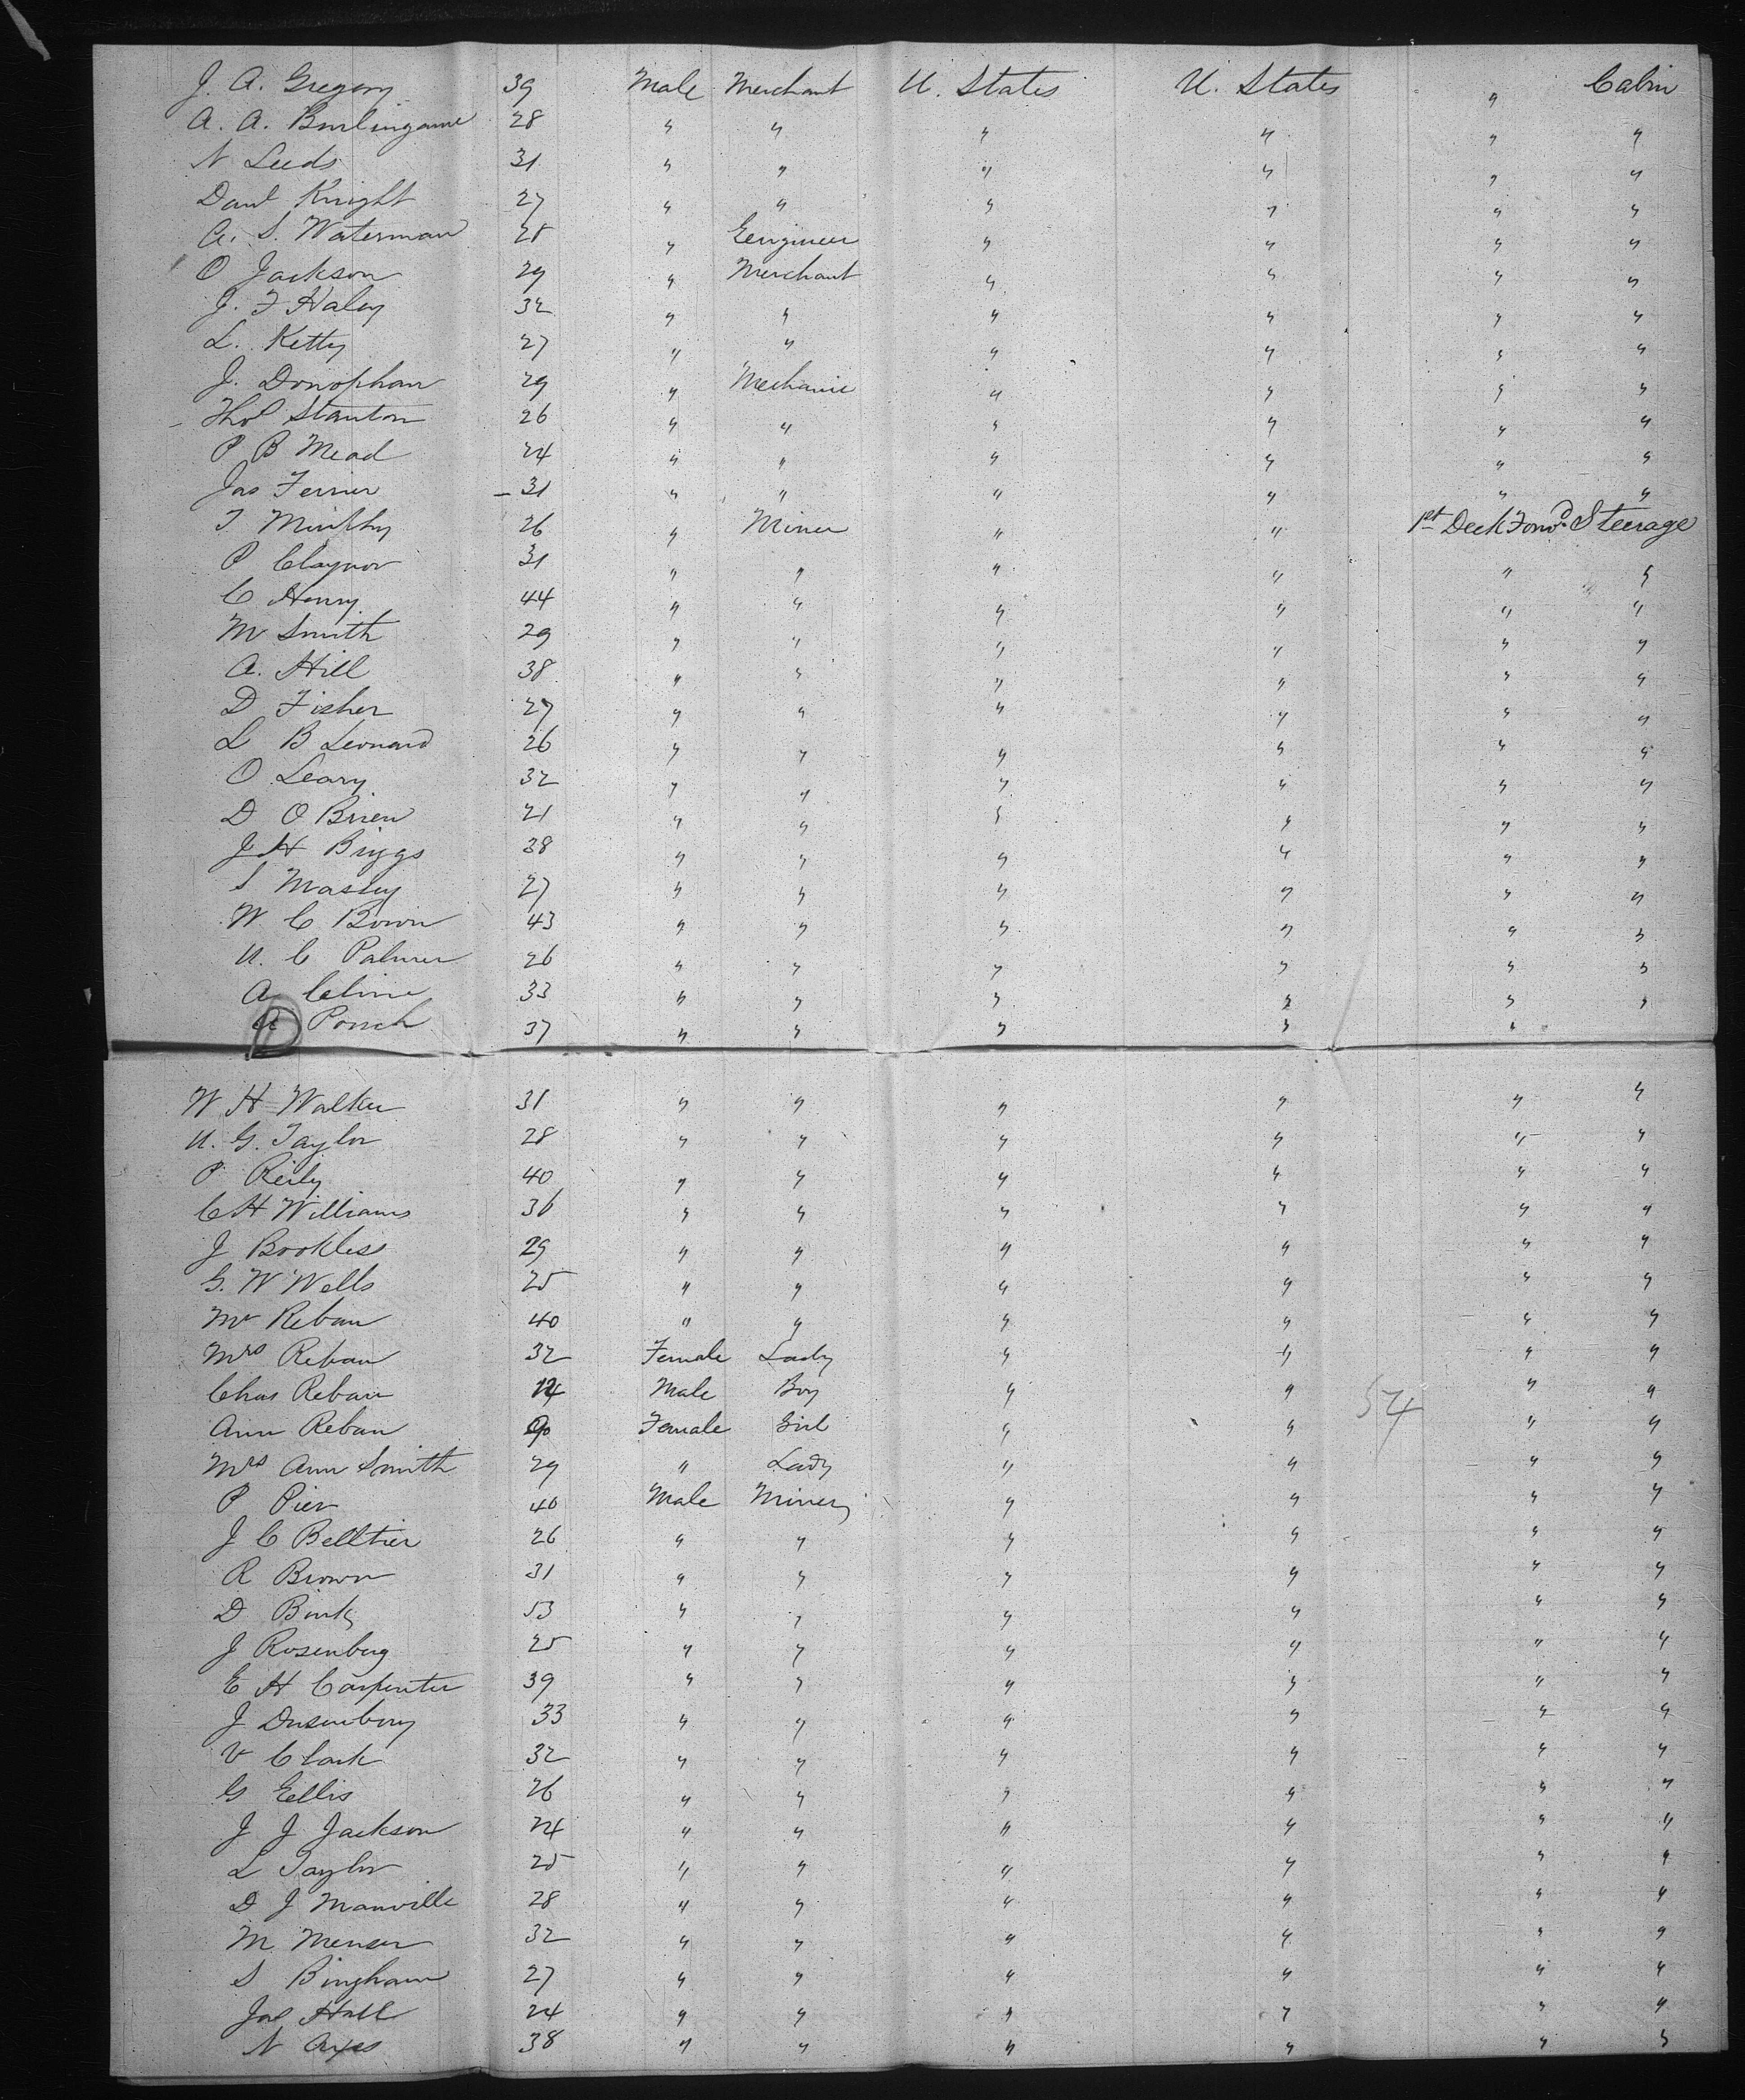 J. A. Gregory 39 Male Merchant U. States U. States " Cabin
A. A. Burlingame 28 " " " " " "
N Leeds 31 " " " " " "
Danl Knight 27 " " " " " "
A. S. Waterman 28 " Eengineer " " " "
O Jackson 29 " Merchant " " " "
J. F Haley 32 " " " " " "
L. Ketty 27 " " " " " "
J. Donophan 29 " Mechanic " " " "
Thos Stanton 26 " " " " " "
P B Mead 24 " " " " " "
Jas Ferrier 31 " " " " " "
T Murphy 26 " Miner " " 1st Deck Forwd Steerage
P Claynor 31 " " " " " "
C Henry 44 " " " " " "
M Smith 29 " " " " " "
A. Hill 38 " " " " " "
D Fisher 27 " " " " " "
L B Leonard 26 " " " " " "
O Leary 32 " " " " " "
D O Brien 21 " " " " " "
J H Briggs 38 " " " " " "
S Masley 27 " " " " " "
W C Bown 43 " " " " " "
U. C Palmer 26 " " " " " "
A Cline 33 " " " " " "
Porch 37 " " " " "
W H Walker 31 " " " " " "
U. G. Taylor 28 " " " " " "
P Reily 40 " " " " " "
C H Williams 36 " " " " " "
J Bookless 29 " " " " " "
G. W Wells 25 " " " " " "
Mr Reban 40 " " " " " "
Mrs Reban 32 Female Lady " " " "
Chas Reban Male Boy " " 54 " "
Ann Reban Female Girl " " " "
Mrs Ann Smith 29 " Lady " " " "
P Pier 40 Male Miner " " " "
J C Belltier 26 " " " " " "
R Brown 31 " " " " " "
D Burk 53 " " " " " "
J Rosenberg 25 " " " " " "
E H Carpenter 39 " " " " " "
J Dusenbery 33 " " " " " "
V Clark 32 " " " " " "
G Ellis 26 " " " " " "
J J Jackson 24 " " " " " "
L Taylor 25 " " " " " "
D J Manville 28 " " " " " "
M Menser 32 " " " " " "
S Bingham 27 " " " " " "
Jas Hall 24 " " " " " "
N Ayes 38 " " " " " "